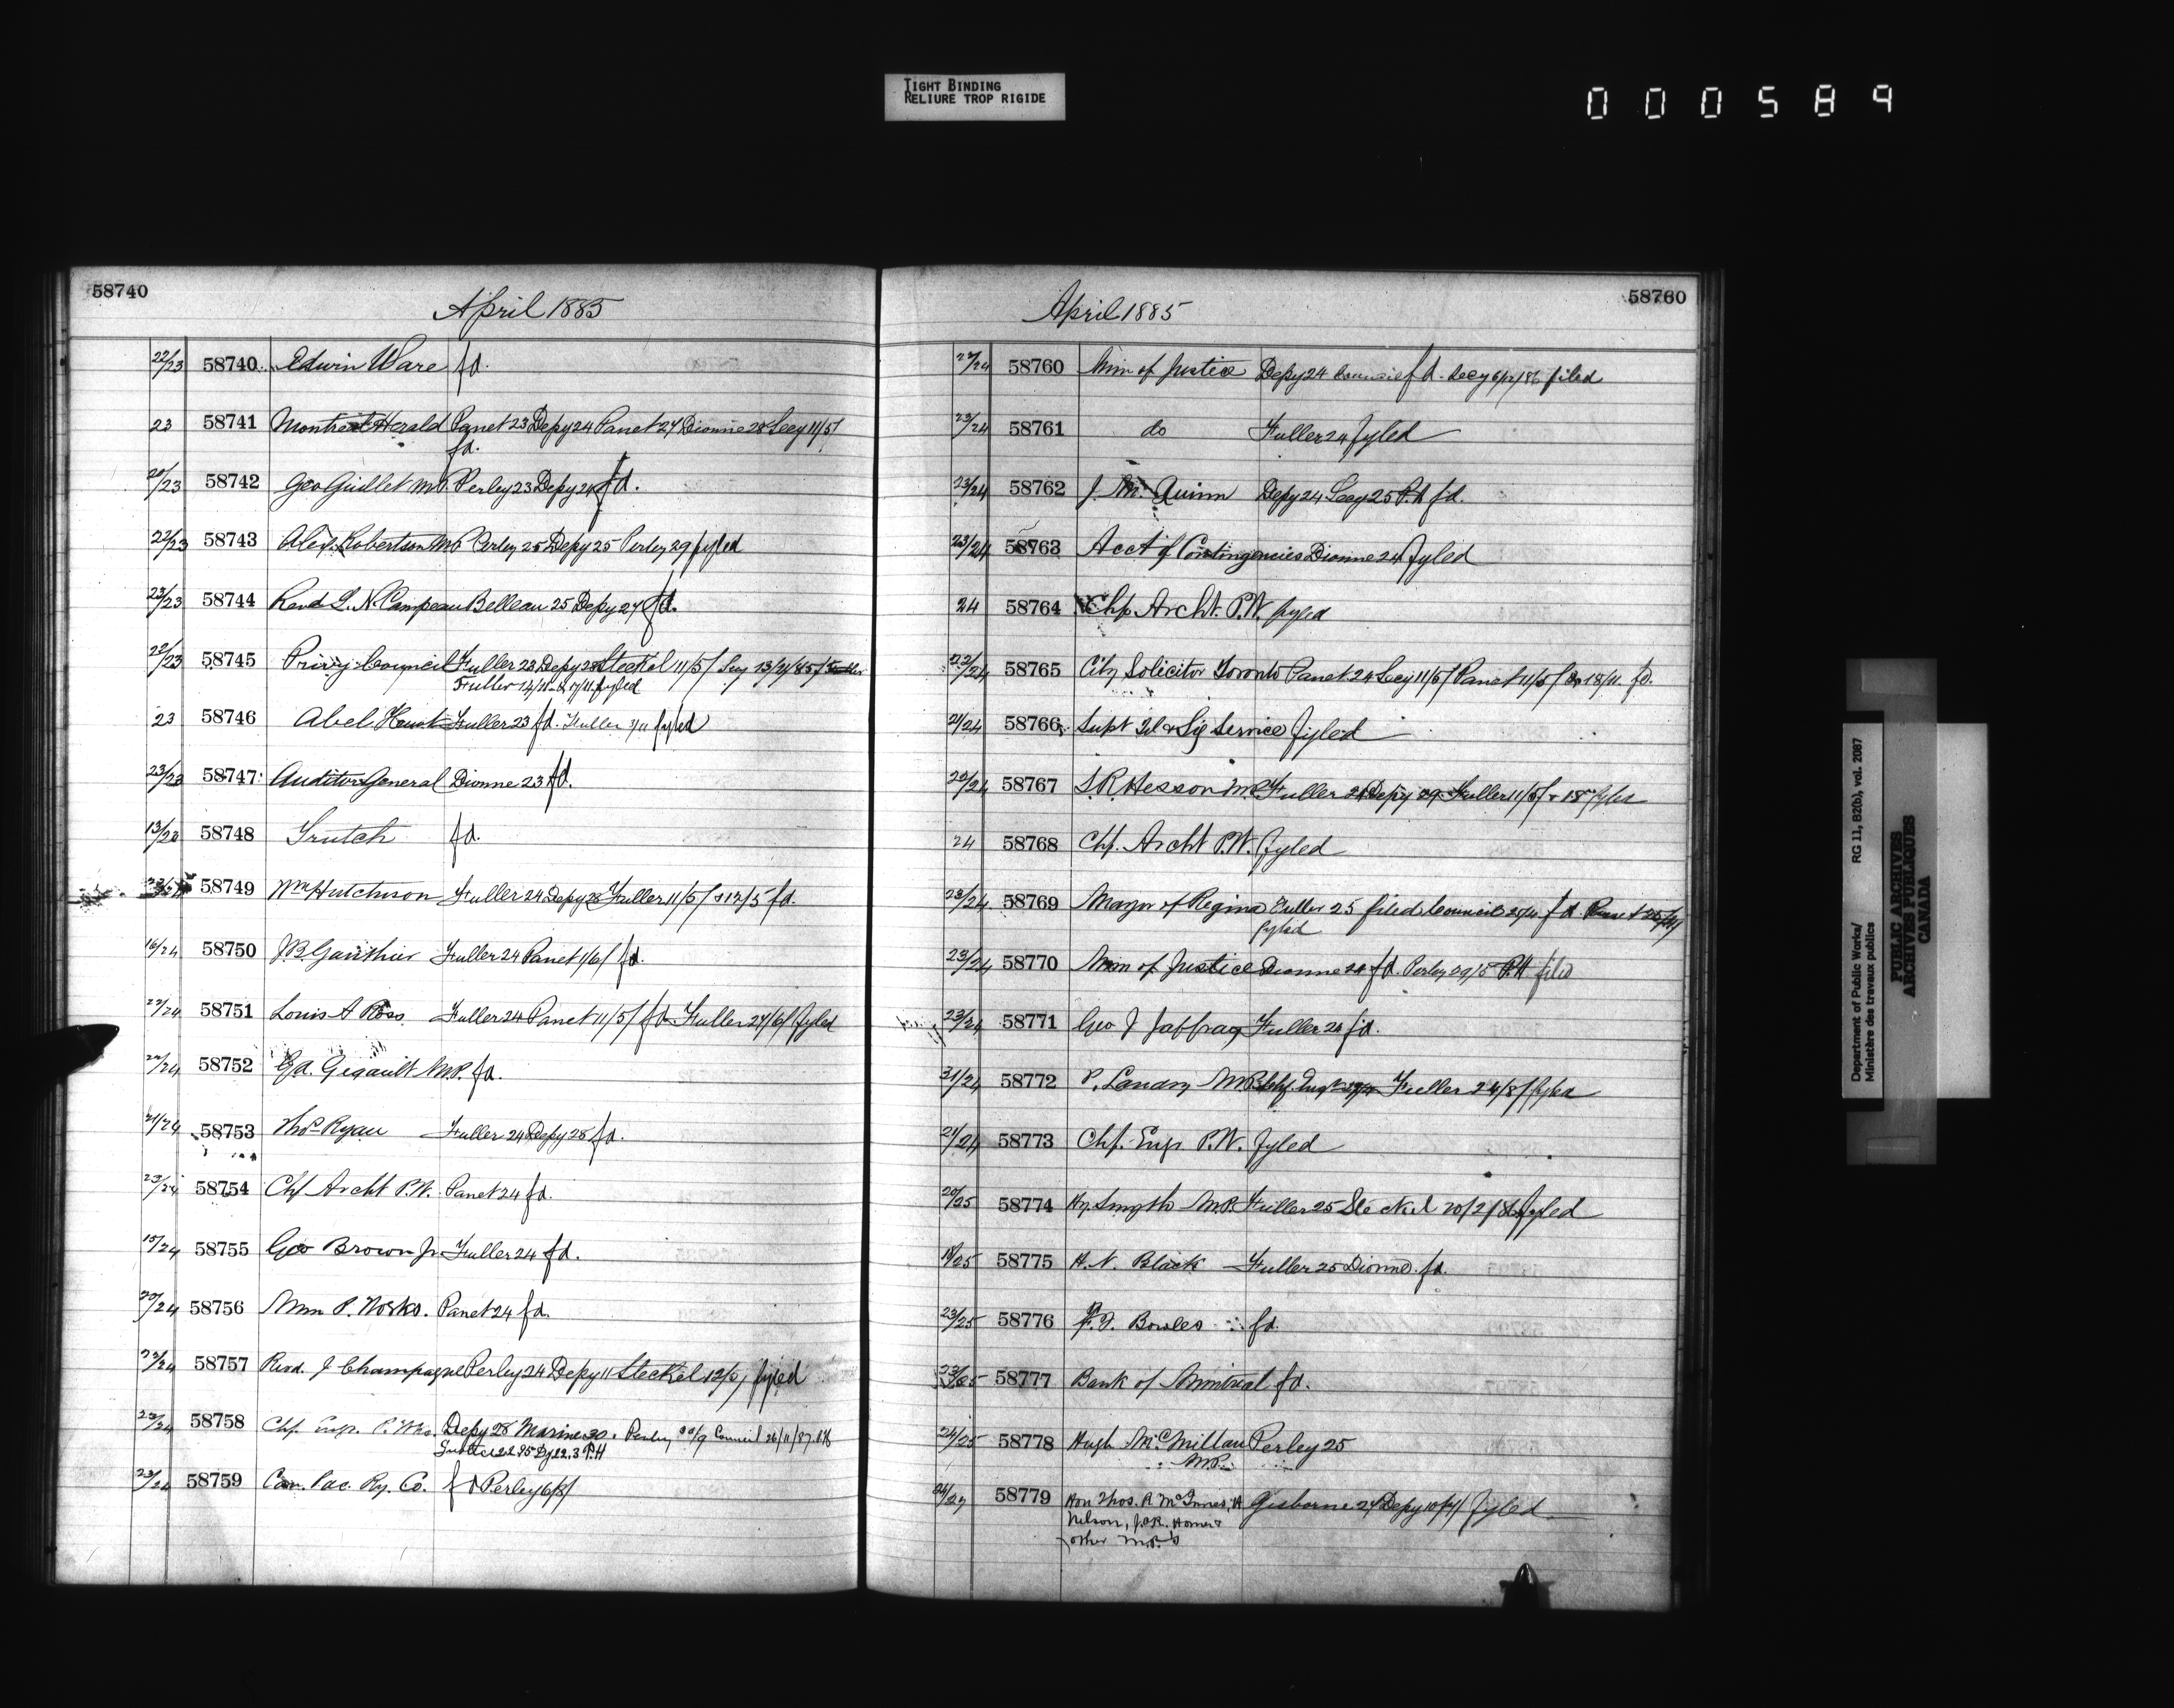 TIGHT BINDING
RELIURE TROP RIGIDE
000589
58740
April 1885
22/23 58740 Edwin Ware fd.
23 58741 Montreal Herald Panet 23 Depy 24 Panet 27 Dionne 28 Secy 11/5/
fd.
20/23 58742 Geo Guillet MP Perley 23 Depy 24 fd.
22/23 58743 Alex. Robertson MP Perley 25 Depy 25 Perley 29 fyled
23/23 58744 Revd L. N. Campeau Belleau 25 Depy 27 fd.
22/23 58745 Privy Council Fuller 23 Depy 28 Steckel 11/5/ Secy 13/2/85/ Fuller
Fuller 14/11 & 17/11 fyled
23 58746 Abel Fuller 23 fd. Fuller 3/11 fyled
23/23 58747 Auditor General Dionne 23 fd.
13/23 58748 Trutch fd.
58749 Wm Hutchison Fuller 24 Depy 28 Fuller 11/5/ & 12/5 fd.
16/24 58750 J.B. Gauthier Fuller 24 Panet 1/6/ fd.
23/24 58751 Louis A Ross Fuller 24 Panet 11/5/ fd Fuller 27/6/ fyled
22/24 58752 G.A. Gigault M.P. fd.
21/24 58753 Thos Ryan Fuller 24 Depy 28 fd.
23/24 58754 Chf Archt P.W. Panet 24 fd.
15/24 58755 Geo Brown Jr Fuller 24 fd.
20/24 58756 Min P. Works. Panet 24 fd.
23/24 58757 Revd. J Champagne Perley 24 Depy 11 Steckel 12/5/ fyled
23/24 58758 Chf. Engr. P. Wks. Depy 28 Marine 30. Perley 30/9 Council 26/11/87
22.3 P.H
23/24 58759 Can. Pac. Ry. Co. fd Perley 6/8/
58760
April 1885
22/24 58760 Min of Justice Depy 24 Council fd. Secy 6/12/86 filed
23/24 58761 do Fuller 24 fyled
23/24 58762 J. M. Quinn Depy 24 Secy 25 P.H fd.
23/24 58763 Acct of Contingencies Dionne 24 fyled
24 58764 Chf. Archt. P.W. fyled
22/24 58765 City Solicitor Toronto Panet 24 Secy 11/5/ Panet 11/5/ Do 18/11. fd.
21/24 58766 Supt Tel & Sig Service fyled
20/24 58767 S.R. Hesson M.P. Fuller 24 Depy 29 Fuller 11/5/ & 18 fyled
24 58768 Chf. Archt P.W. fyled
23/24 58769 Mayor of Regina Fuller 25 filed Council fd. Panet
fyled
23/24 58770 Min of Justice Dionne 24 fd. Perley 29/5 P.H filed
23/24 58771 Geo J Jaffray Fuller 24 fd.
21/24 58772 P. Landry M.P. Chf. Engr Fuller 24/8/ fyled
21/24 58773 Chf. Engr P.W. fyled
20/25 58774 Hy. Smyth M.P. Fuller 25 Steckel 20/2/86 fyled
18/25 58775 H. N. Black Fuller 25 Dionne. fd.
23/25 58776 F. T. Bowles fd.
23/25 58777 Bank of Montreal fd.
24/25 58778 Hugh McMillan Perley 25
M.P.
24/27 58779 Hon Thos. R McInnes, H Gisborne 27 Depy fyled
Nelson, J.A.R. Homer &
other M.P.'s
Department of Public Works/ RG 11, B2(b), vol. 2087
Ministère des travaux publics
PUBLIC ARCHIVES
ARCHIVES PUBLIQUES
CANADA